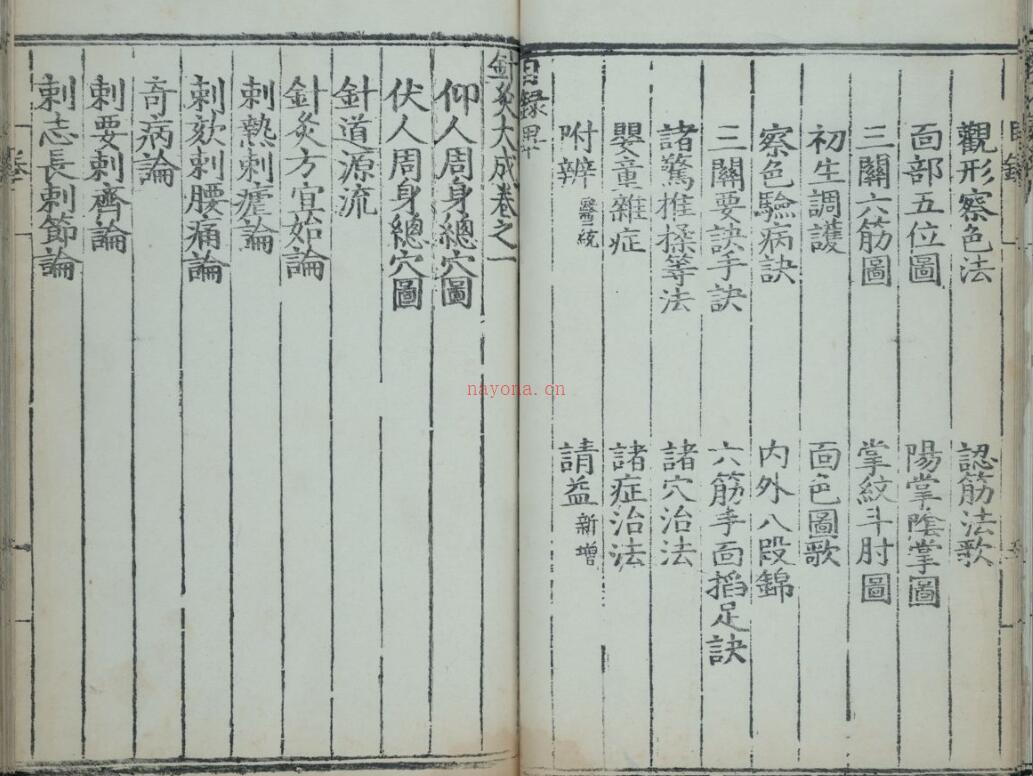 觀形察色法 認筋法歌
面部五位圖 陽掌陰掌圖
三關六筋圖 掌紋斗肘圖
初生調護 面色圖歌
察色驗病訣 内外八段錦
三關要訣手訣 六筋手面掐足訣
諸驚推揉等法 諸穴治法
嬰童雜症 諸症治法
附辨醫統 請益新增
目錄畢
針灸大成卷之一
仰人周身總穴圖
伏人周身總穴圖
針道源流
針灸方宜始論
刺熱刺瘧論
刺欬刺腰痛論
奇病論
刺要刺齊論
刺志長刺節論
nayona.cn